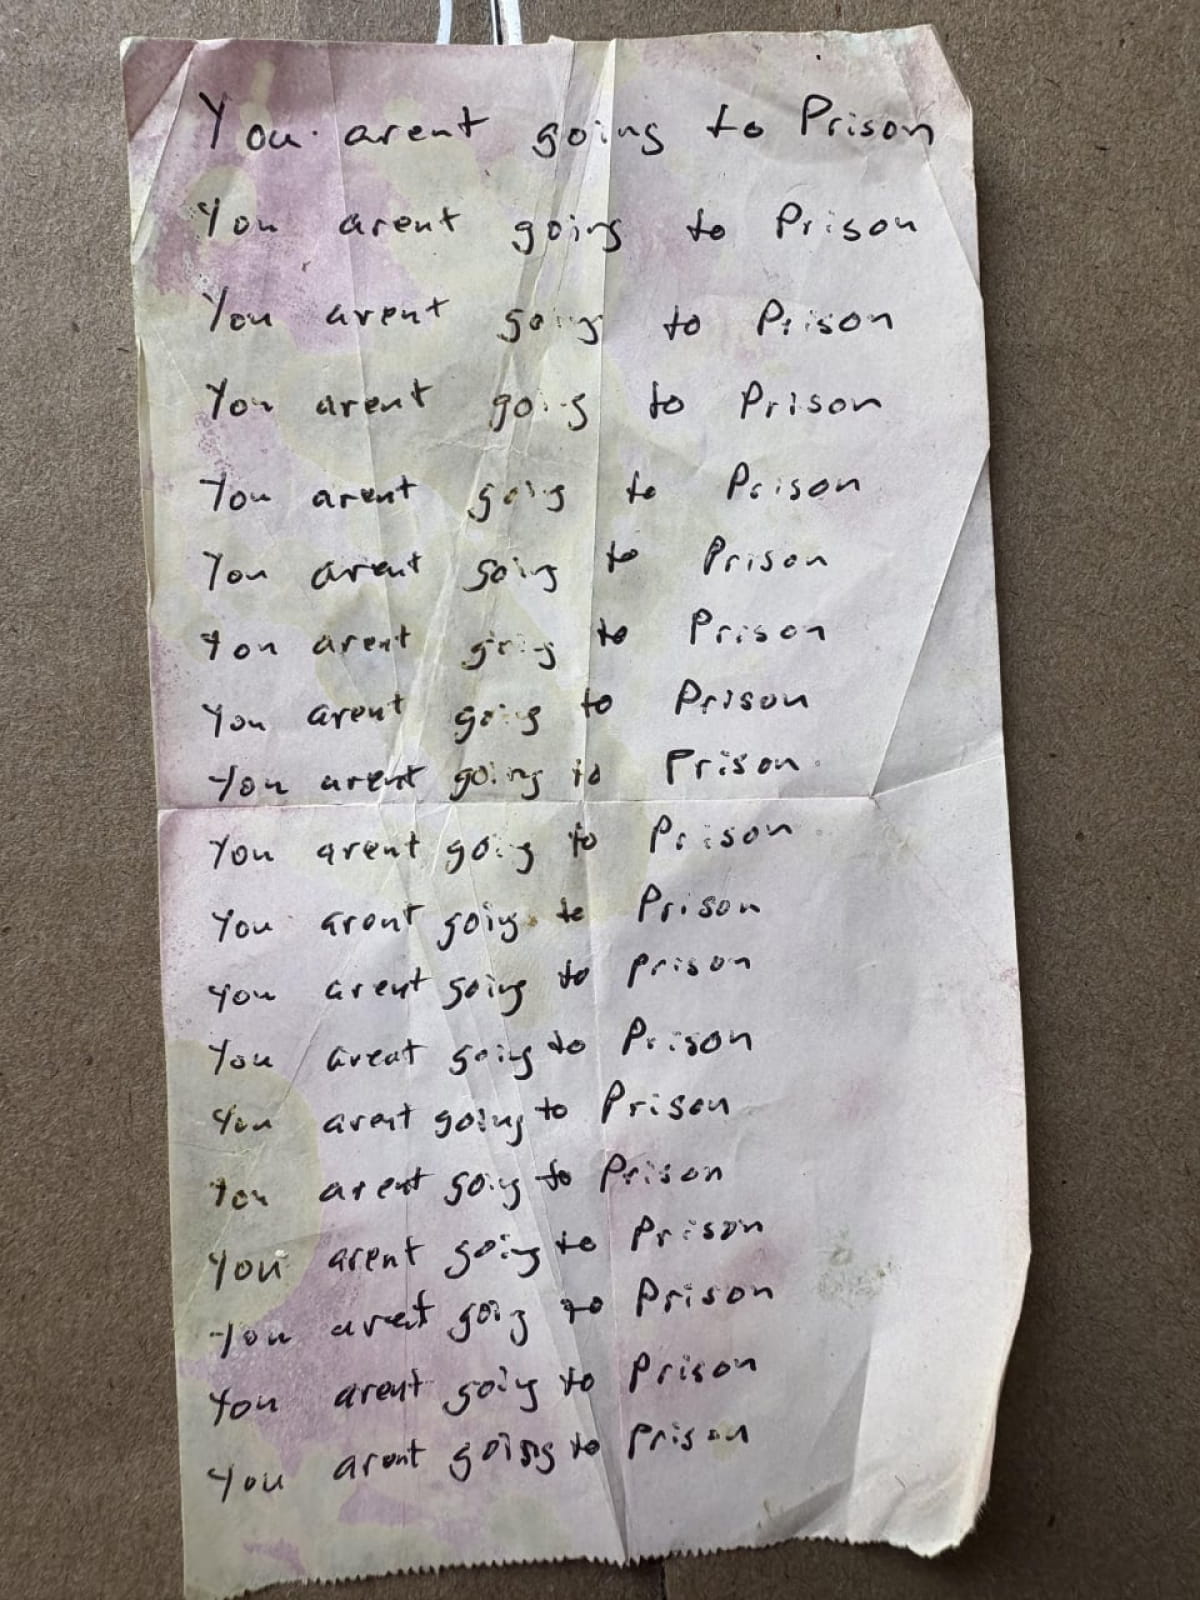 You arent going to Prison
You arent going to Prison
You arent going to Prison
You arent going to Prison
You arent going to Prison
You arent going to Prison
You arent going to Prison
You arent going to Prison
You arent going to Prison
You arent going to Prison
You arent going to Prison
you arent going to prison
You arent going to Prison
You arent going to Prison
You arent going to Prison
You arent going to Prison
You arent going to Prison
You arent going to Prison
You arent going to Prison